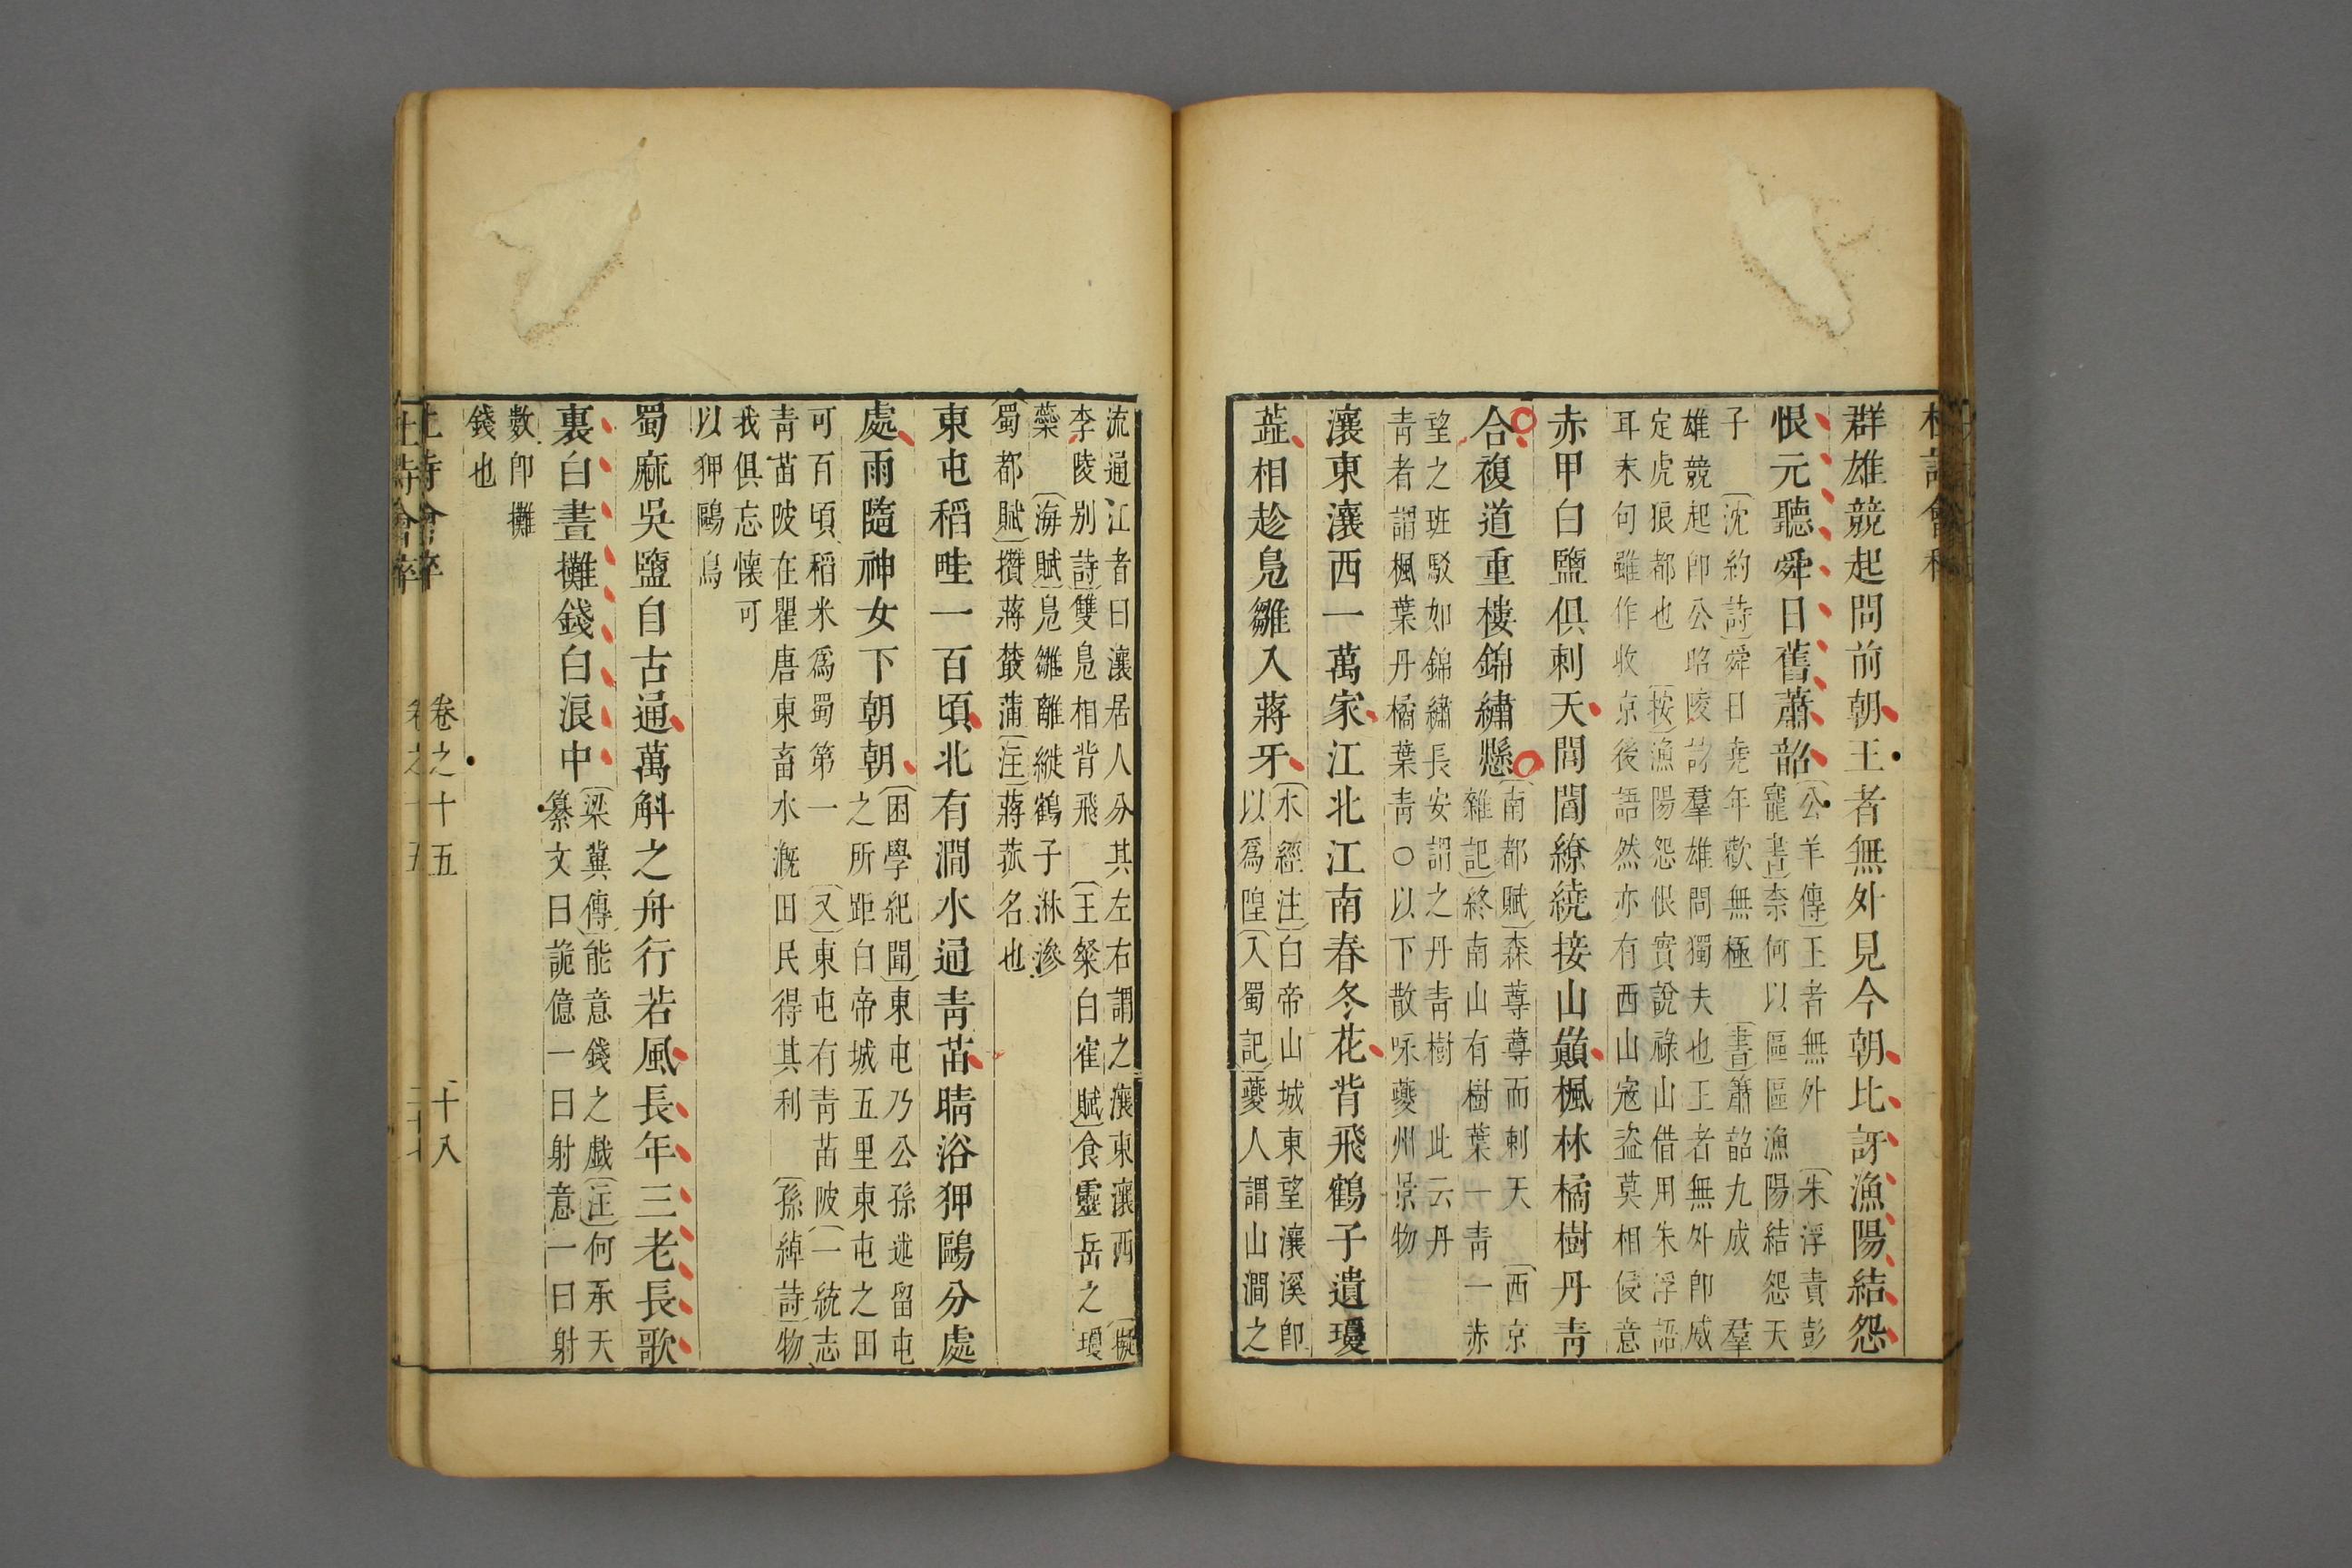 群雄競起問前朝王者無外見今朝比訝漁陽結怨
恨元聽舜日舊蕭韶
公羊傳王者無外 朱浮責彭
寵書奈何以區區漁陽結怨天
子 沈約詩舜日堯年歡無極 書簫韶九成 羣
雄競起卽公昭陵詩羣雄問獨夫也王者無外卽威
定虎狼都也 按漁陽怨恨實說祿山借用朱浮語
耳末句雖作收京後語然亦有西山寇盜莫相侵意
赤甲白鹽俱刺天閭閻繚繞接山巔楓林橘樹丹靑
合複道重樓錦繡懸
南都賦森蓴蓴而刺天 西京
雜記終南山有樹葉一靑一赤
望之班駁如錦繡長安謂之丹靑樹 此云丹
靑者謂楓葉丹橘葉靑○以下散咏夔州景物
瀼東瀼西一萬家江北江南春冬花背飛鶴子遺瓊
蘂相趁鳧雛入蔣牙
水經注白帝山城東望瀼溪卽
以爲隍入蜀記夔人謂山澗之
流通江者曰瀼居人分其左右謂之瀼東瀼西 擬
李陵別詩雙鳧相背飛 王粲白隺賦食靈岳之瓊
蘂 海賦鳧雛離褷鶴子淋滲
蜀都賦攢蔣叢蒲注蔣菰名也
東屯稻畦一百頃北有澗水通靑苗晴浴狎鷗分處
處雨隨神女下朝朝
困學紀聞東屯乃公孫述留屯
之所距白帝城五里東屯之田
可百頃稻米爲蜀第一 又東屯有靑苗陂一統志
靑苗陂在瞿唐東畜水漑田民得其利 孫綽詩物
我俱忘懷可
以狎鷗鳥
蜀麻吳鹽自古通萬斛之舟行若風長年三老長歌
裏白晝攤錢白浪中
梁冀傳能意錢之戲注何承天
纂文曰詭億一曰射意一曰射
數卽攤
錢也
卷之十五 十八